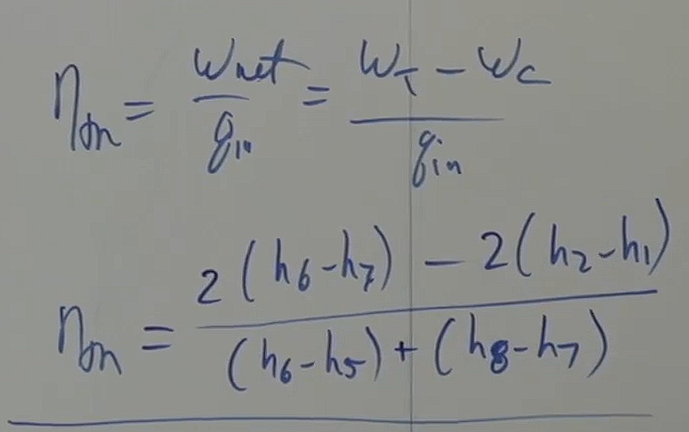 η_th = w_net / q_in = (w_T − w_C) / q_in
η_th = (2(h_6 − h_7) − 2(h_2 − h_1)) / ((h_6 − h_5) + (h_8 − h_7))